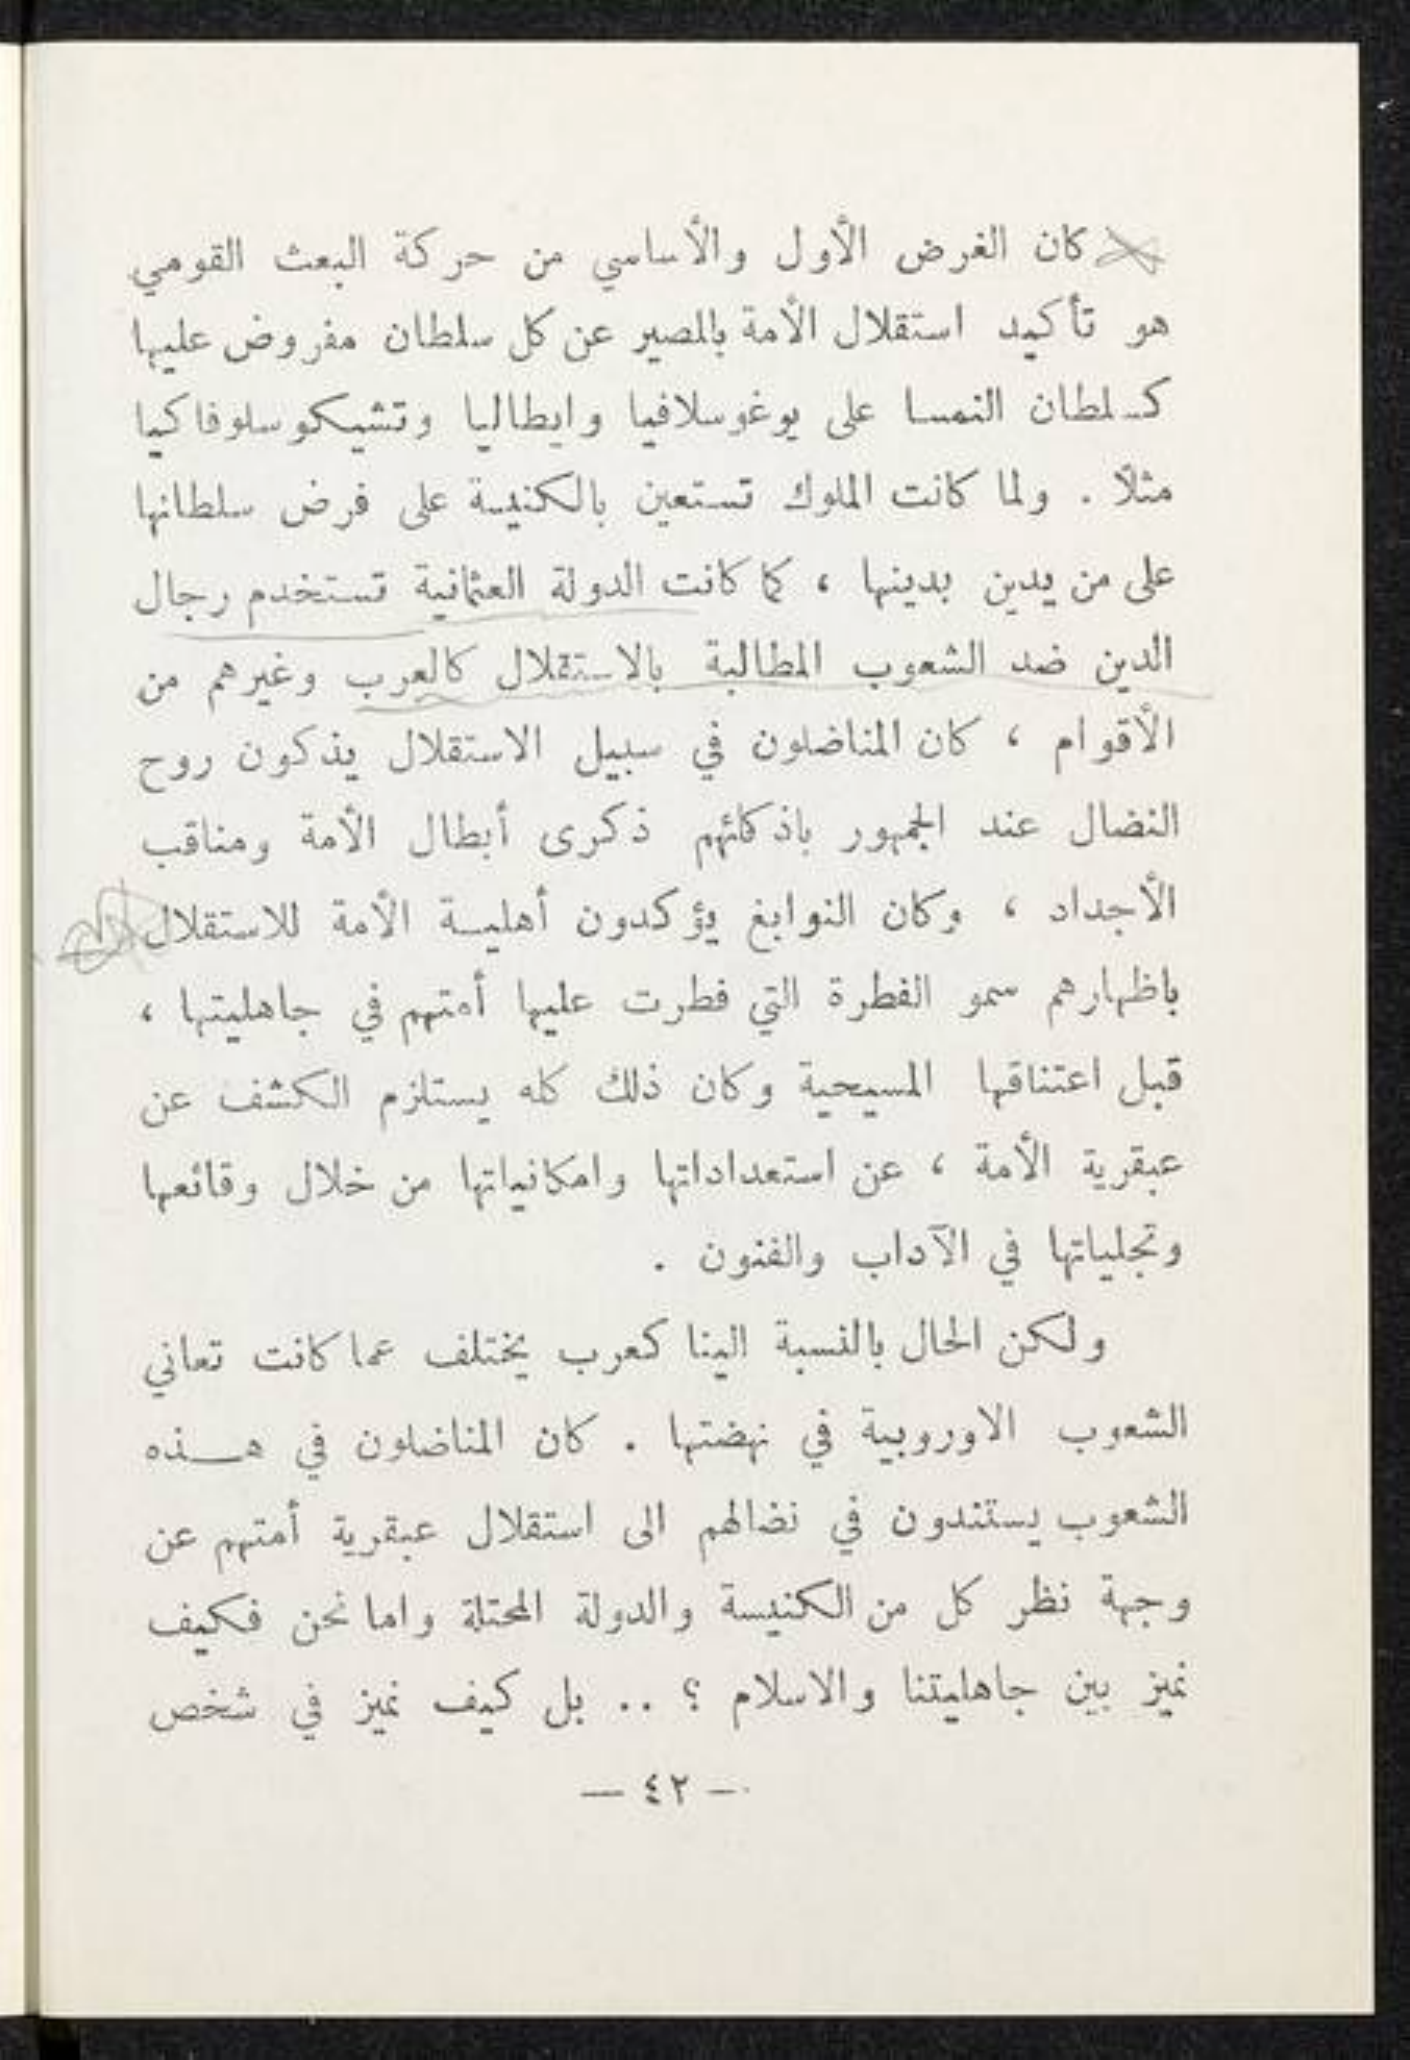 كان الغرض الأول والأساسي من حركة البعث القومي
هو تأكيد استقلال الأمة بالمصير عن كل سلطان مفروض عليها
كسلطان النمسا على يوغوسلافيا وايطاليا وتشيكوسلوفاكيا
مثلاً . ولما كانت الملوك تستعين بالكنيسة على فرض سلطانها
على من يدين بدينها ، كما كانت الدولة العثمانية تستخدم رجال
الدين ضد الشعوب المطالبة بالاستقلال كالعرب وغيرهم من
الأقوام ، كان المناضلون في سبيل الاستقلال يذكون روح
النضال عند الجمهور باذكائهم ذكرى أبطال الأمة ومناقب
الأجداد ، وكان النوابغ يؤكدون أهليـــة الأمة للاستقلال
باظهارهم سمو الفطرة التي فطرت عليها أمتهم في جاهليتها ،
قبل اعتناقها المسيحية وكان ذلك كله يستلزم الكشف عن
عبقرية الأمة ، عن استعداداتها وامكانياتها من خلال وقائعها
وتجلياتها في الآداب والفنون .
ولكن الحال بالنسبة الينا كعرب يختلف عما كانت تعاني
الشعوب الاوروبية في نهضتها . كان المناضلون في هـــذه
الشعوب يستندون في نضالهم الى استقلال عبقرية أمتهم عن
وجهة نظر كل من الكنيسة والدولة المحتلة واما نحن فكيف
نميز بين جاهليتنا والاسلام ؟ .. بل كيف نميز في شخص
— ٤٢ —